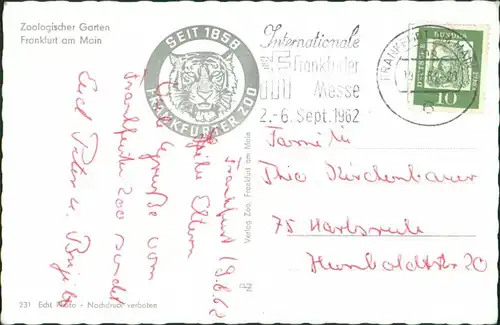 Zoologischer Garten
Frankfurt am Main
SEIT 1858
FRANKFURTER ZOO
Internationale
Frankfurter
Messe
2.-6. Sept. 1962
FRANKFURT
DEUTSCHE BUNDESPOST
10
Frankfurt 19.8.62
Liebe Eltern
Viele Grüße vom
Frankfurter Zoo sendet
Euch Peter u. Brigitte
Familie
Theo Kirchenbauer
75 Karlsruhe
Humboldtstr 20
Verlag Zoo, Frankfurt am Main
231 Echt Photo - Nachdruck verboten